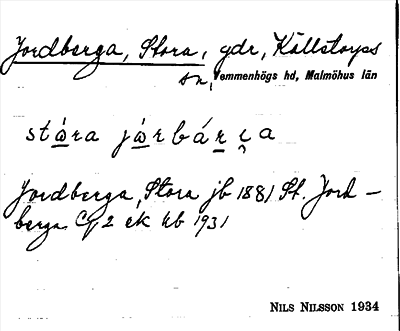 Jordberga, Stora, gdr, Källstorps
sn, Vemmenhögs hd, Malmöhus län
stɷ̀ra jɷ̀rbár̠i̭a
Jordberga, Stora jb 1881 St. Jord-
berga Cg 2 ek kb 1931
NILS NILSSON 1934